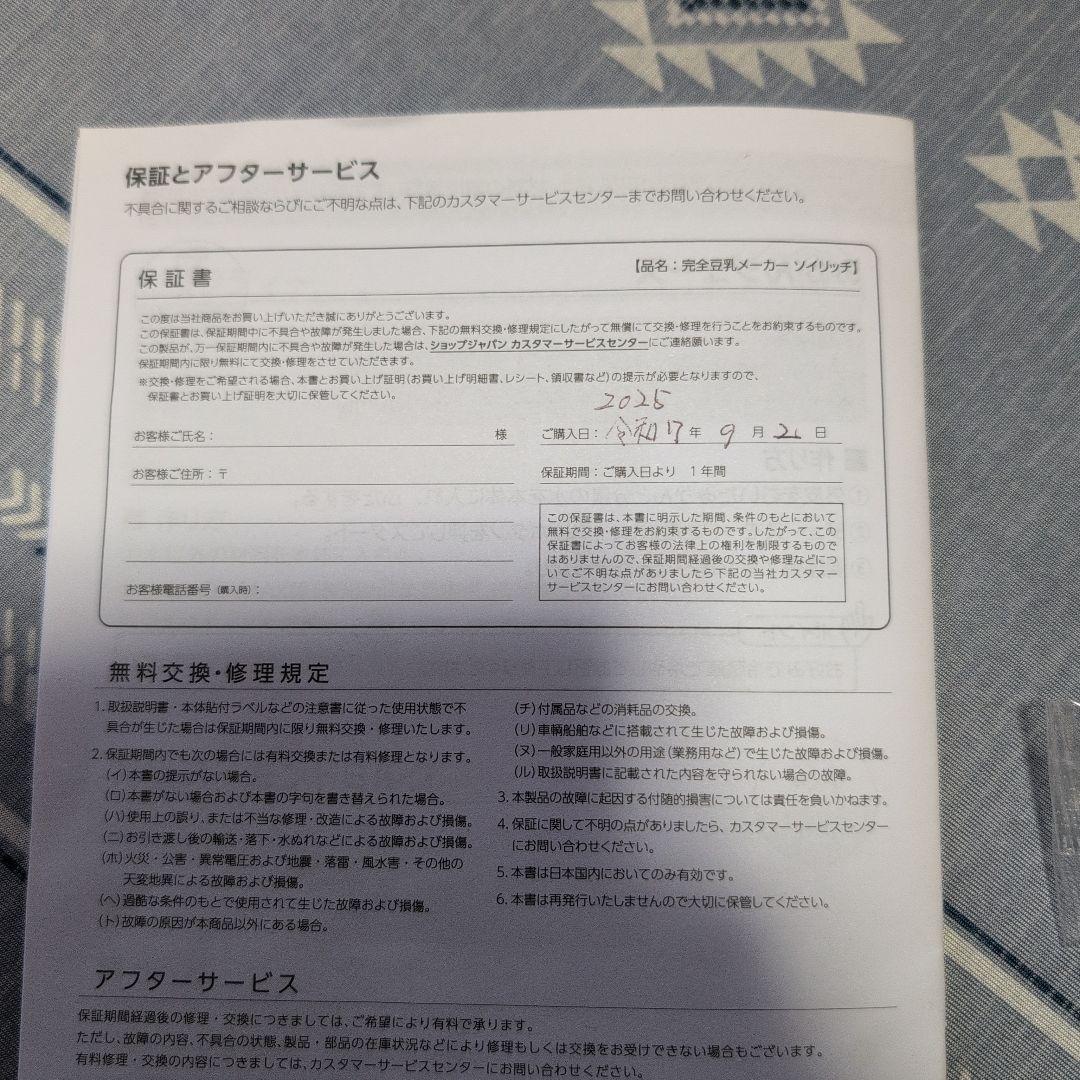 保証とアフターサービス
不具合に関するご相談ならびにご不明な点は、下記のカスタマーサービスセンターまでお問い合わせください。
保証書
【品名：完全豆乳メーカー ソイリッチ】
この度は当社商品をお買い上げいただき誠にありがとうございます。
この保証書は、保証期間中に不具合や故障が発生しました場合、下記の無料交換・修理規定にしたがって無償にて交換・修理を行うことをお約束するものです。
この製品が、万一保証期間内に不具合や故障が発生した場合は、ショップジャパン カスタマーサービスセンターにご連絡願います。
保証期間内に限り無料にて交換・修理をさせていただきます。
※交換・修理をご希望される場合、本書とお買い上げ証明（お買い上げ明細書、レシート、領収書など）の提示が必要となりますので、
保証書とお買い上げ証明を大切に保管してください。
お客様ご氏名： 様
お客様ご住所：〒
お客様電話番号（購入時）：
2025
ご購入日：令和 7 年 9 月 日
保証期間：ご購入日より 1年間
この保証書は、本書に明示した期間、条件のもとにおいて
無料で交換・修理をお約束するものです。したがって、この
保証書によってお客様の法律上の権利を制限するもので
はありませんので、保証期間経過後の交換や修理などにつ
いてご不明な点がありましたら下記の当社カスタマー
サービスセンターにお問い合わせください。
無料交換・修理規定
1. 取扱説明書・本体貼付ラベルなどの注意書に従った使用状態で不
具合が生じた場合は保証期間内に限り無料交換・修理いたします。
2. 保証期間内でも次の場合には有料交換または有料修理となります。
（イ）本書の提示がない場合。
（ロ）本書がない場合および本書の字句を書き替えられた場合。
（ハ）使用上の誤り、または不当な修理・改造による故障および損傷。
（ニ）お引き渡し後の輸送・落下・水ぬれなどによる故障および損傷。
（ホ）火災・公害・異常電圧および地震・落雷・風水害・その他の
天変地異による故障および損傷。
（ヘ）過酷な条件のもとで使用されて生じた故障および損傷。
（ト）故障の原因が本商品以外にある場合。
（チ）付属品などの消耗品の交換。
（リ）車輌船舶などに搭載されて生じた故障および損傷。
（ヌ）一般家庭用以外の用途（業務用など）で生じた故障および損傷。
（ル）取扱説明書に記載された内容を守られない場合の故障。
3. 本製品の故障に起因する付随的損害については責任を負いかねます。
4. 保証に関して不明の点がありましたら、カスタマーサービスセンター
にお問い合わせください。
5. 本書は日本国内においてのみ有効です。
6. 本書は再発行いたしませんので大切に保管してください。
アフターサービス
保証期間経過後の修理・交換につきましては、ご希望により有料で承ります。
ただし、故障の内容、不具合の状態、製品・部品の在庫状況などにより修理もしくは交換をお受けできない場合もございます。
有料修理・交換の内容につきましては、カスタマーサービスセンターにお問い合わせください。